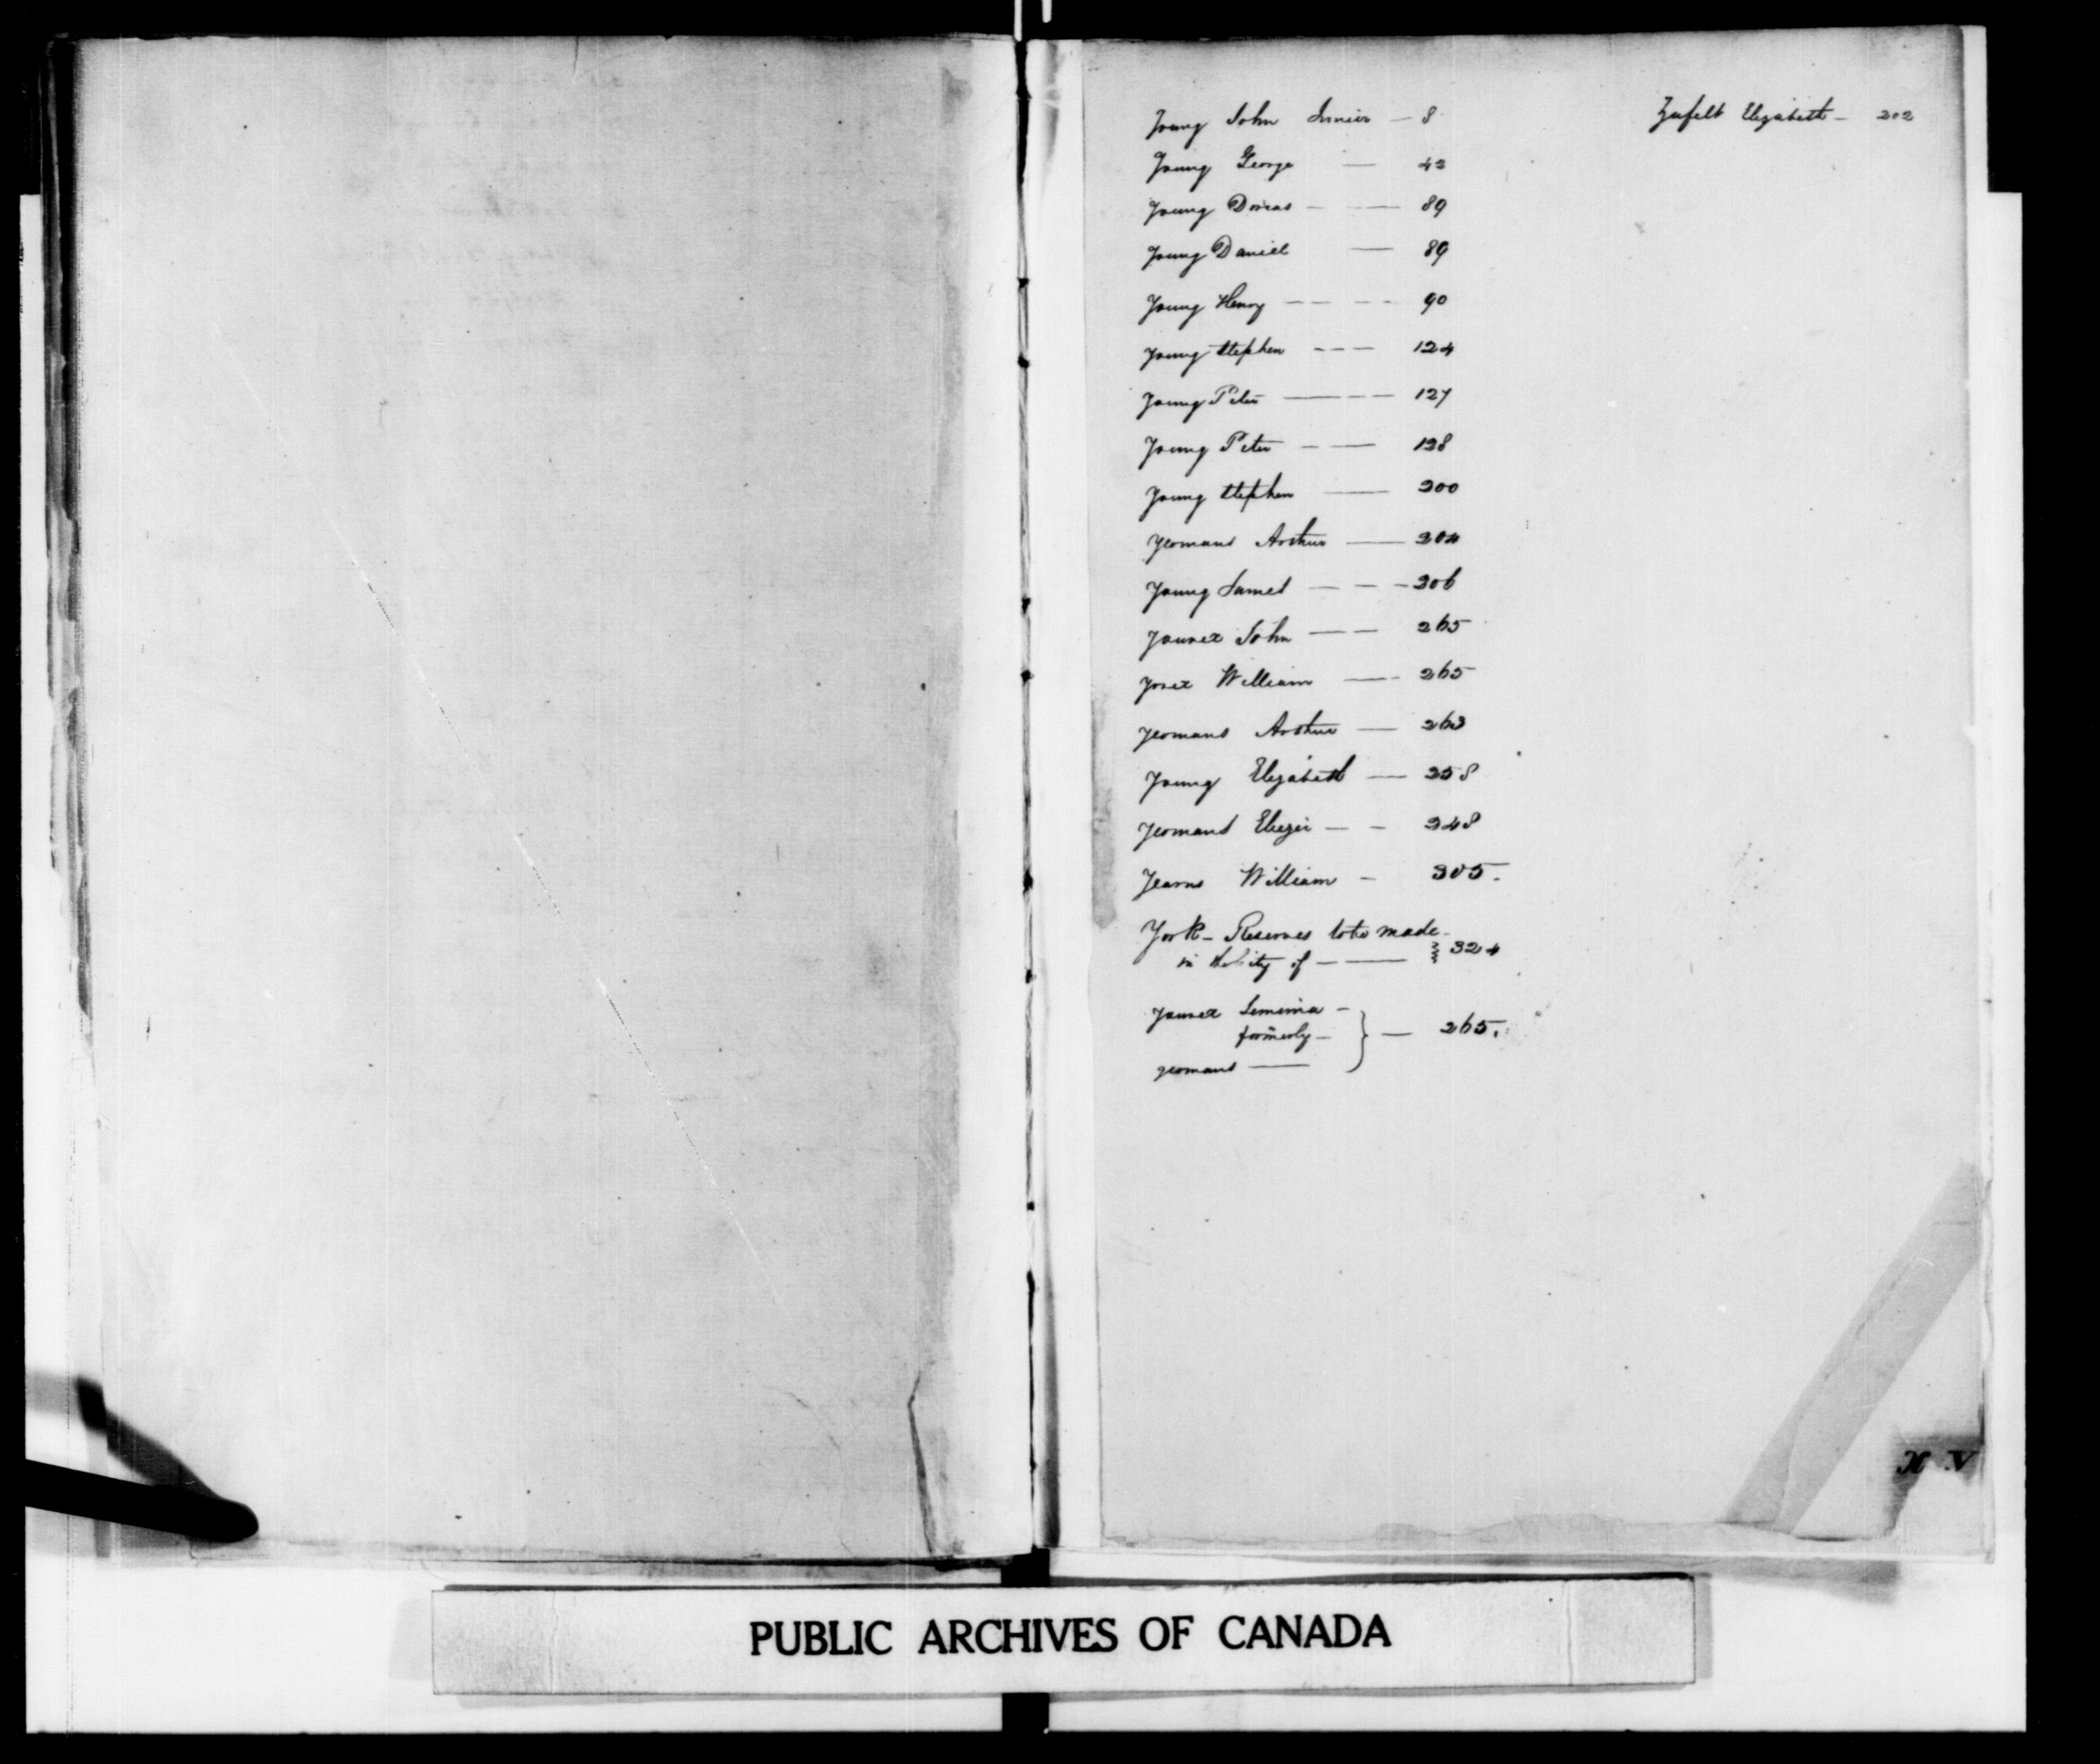 Young John Junior — 8
Young George — 42
Young Dorcas — 89
Young Daniel — 89
Young Henry — 90
Young Stephen — 124
Young Peter — 127
Young Peter — 128
Young Stephen — 200
Yeomans Arthur — 204
Young James — 206
Younex John — 265
Yonex William — 265
Yeomans Arthur — 263
Young Elizabeth — 258
Yeomans — 248
Yearns William — 305.
York - Reserves to be made
in the City of — 324
Younex Jemima —
formerly — } — 265.
yeomans —
Zufelt Elizabeth — 202
PUBLIC ARCHIVES OF CANADA